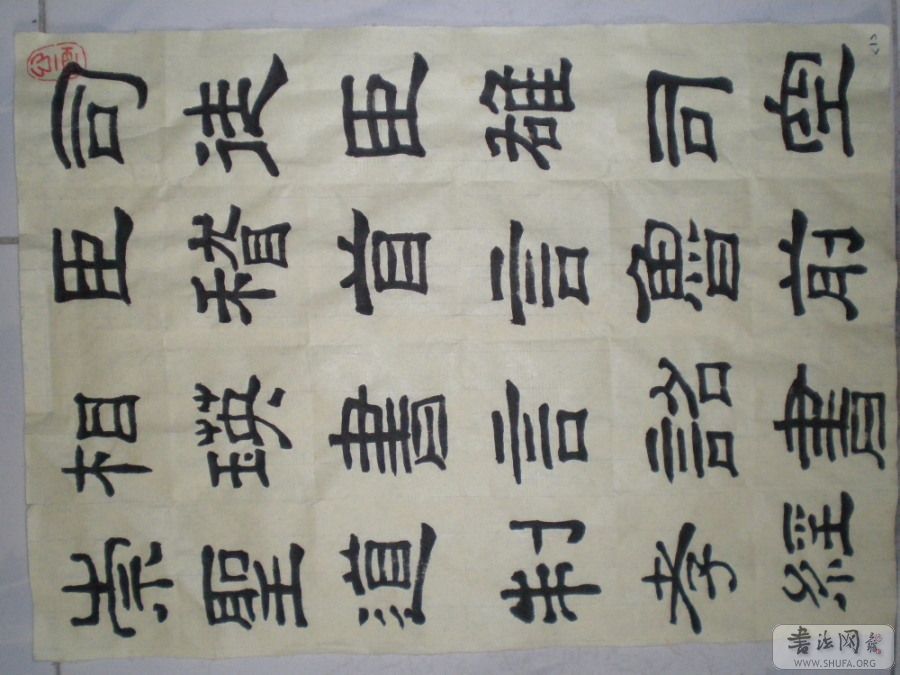 司徒臣雄司空
臣稽首言魯前
相瑛書言詔書
崇聖道制孝經
書法网
WWW.SHUFA.ORG